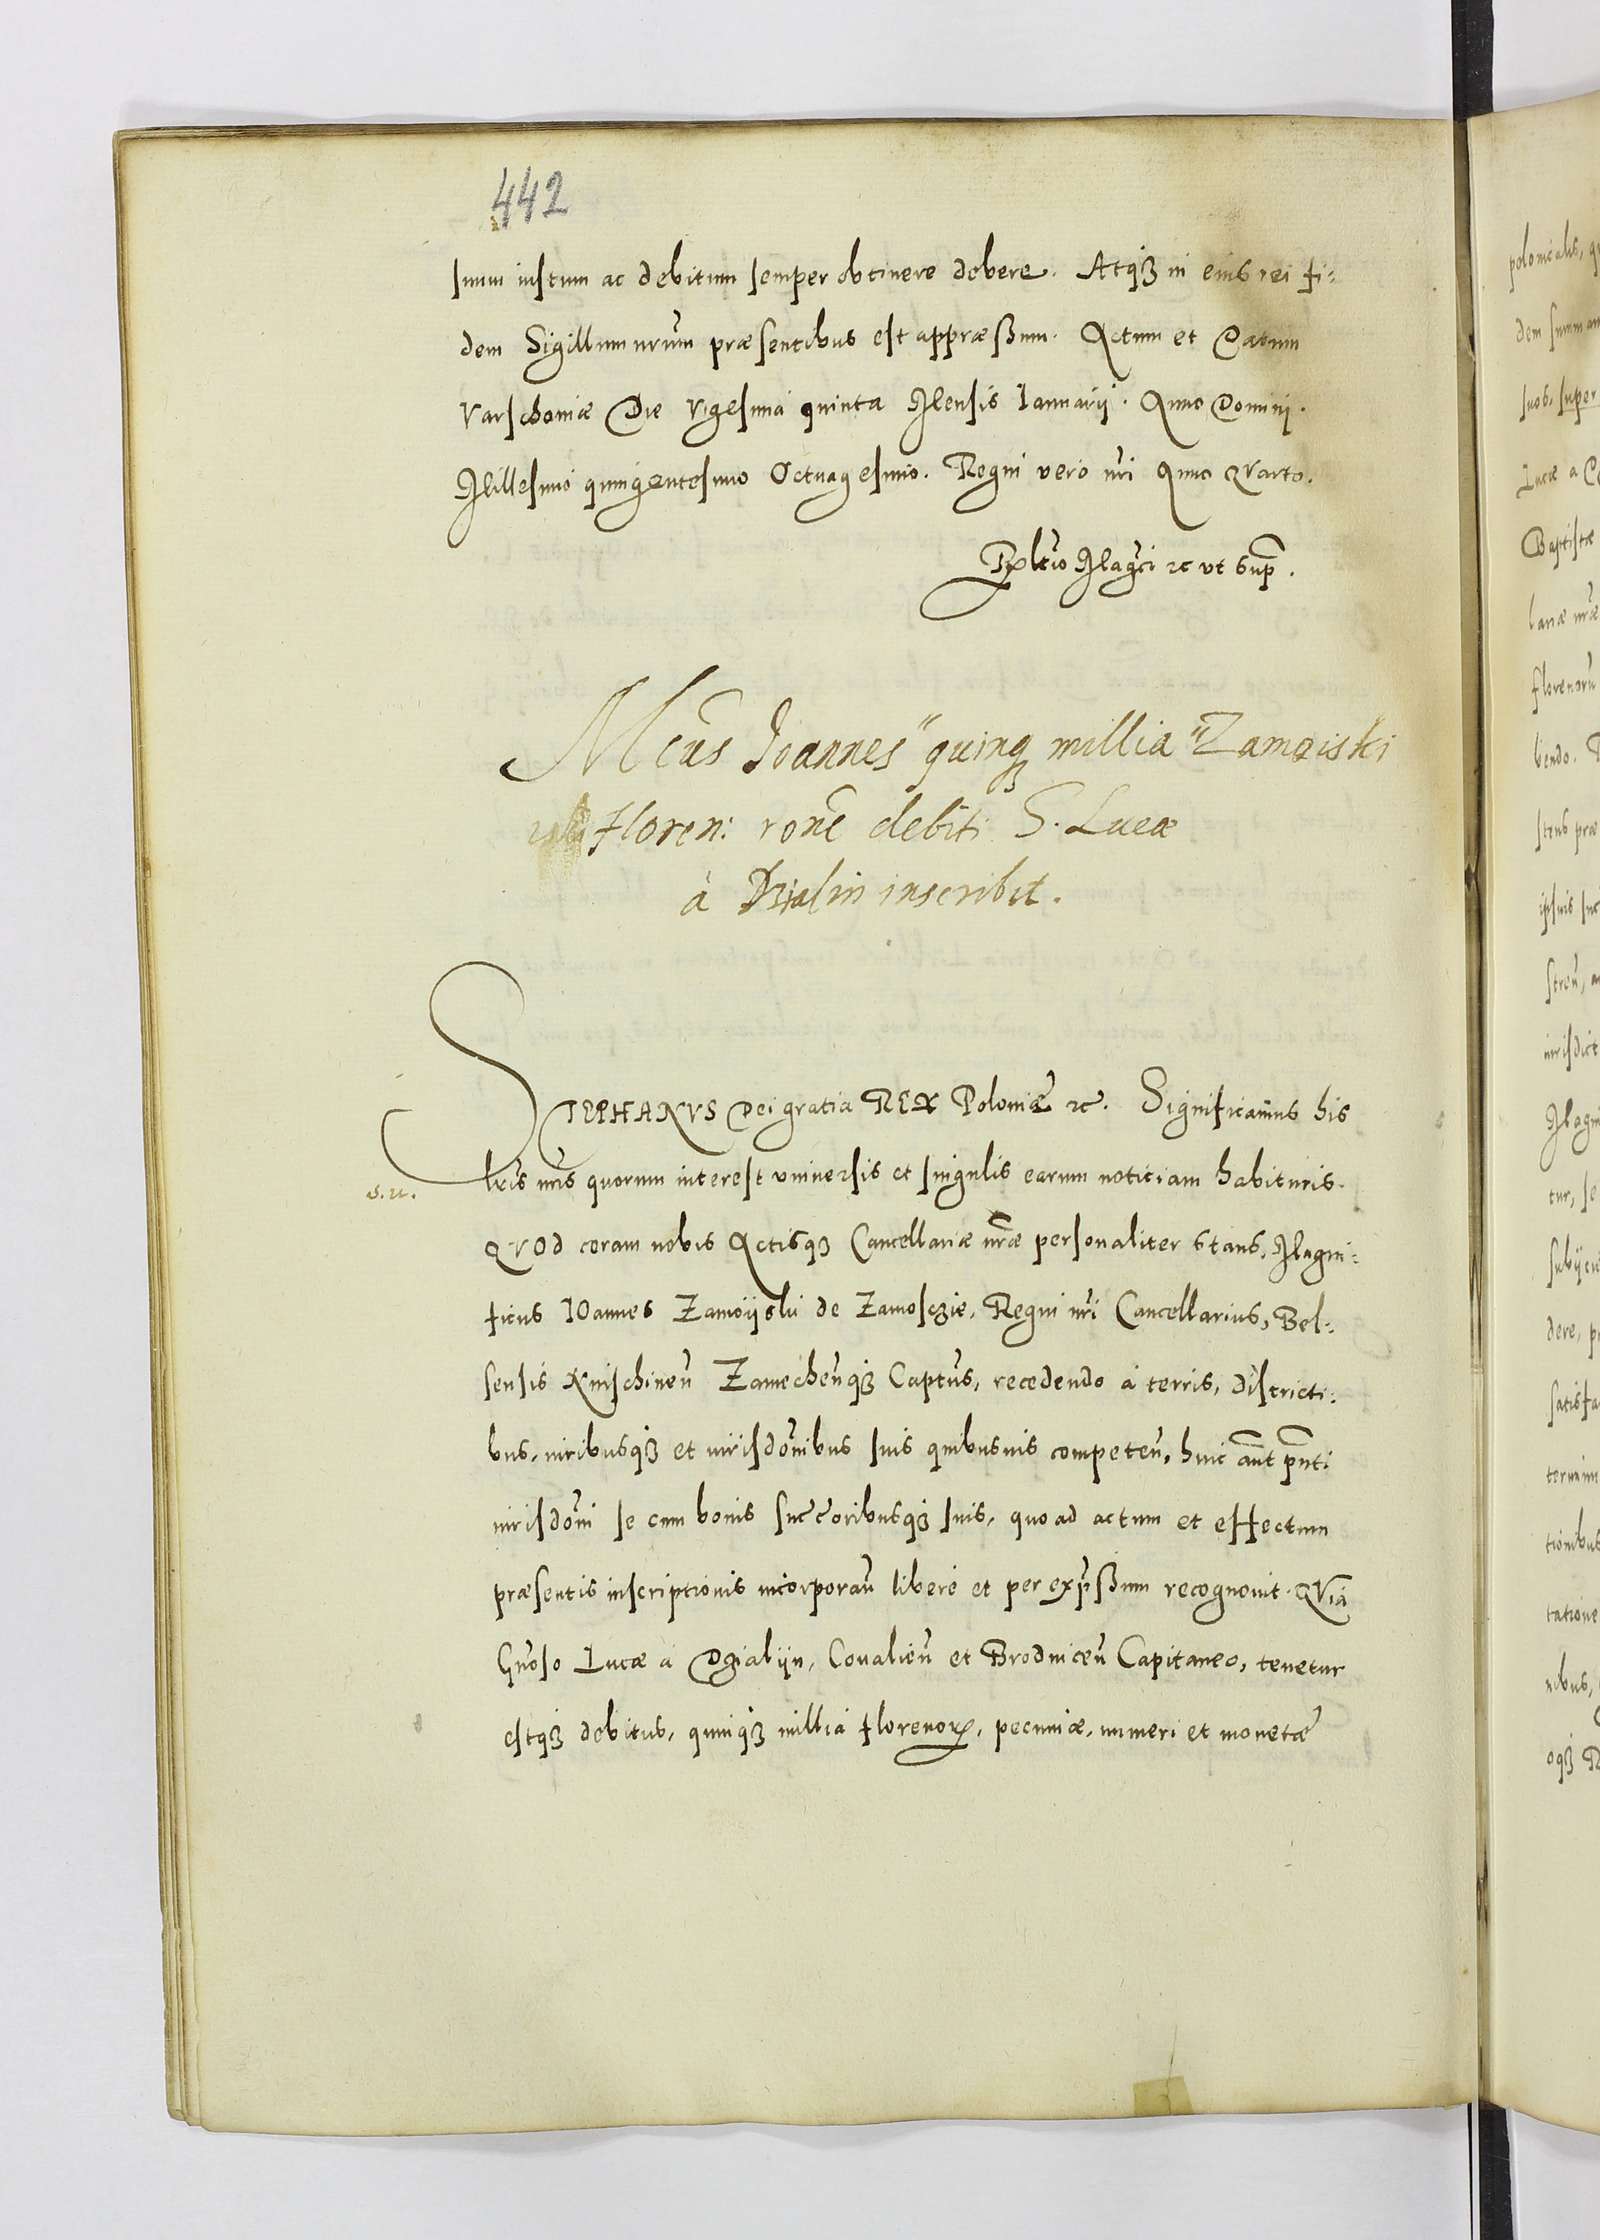 442
suum iustum ac debitum semper obtinere debere. Atq3 in eius rei fi:
dem Sigillum nrum̃ præsentibus est appræßum. Actum et Datum
Varschoniæ Die Vigesima quinta Mensis Ianuarij. Anno Domini.
Millesimo quingentesimo Octuagesimo. Regni vero nri̅ Anno qVarto.
Rltio Magci ꝛc vt Sup̃.
Mcus̃ Joannes "quinq3 millia" Zamoiski
Floren: rone̅ debiti G. Lucæ
à Dzialin inscribit.
STEPHANVS Dei gratia REX Poloniæ ꝛc. Significamus his
s.n.
lris̃ nris̃ quorum interest vniuersis et singulis earum noticiam habituris.
qVOd coram nobis Actisq3 Cancellariæ nræ̃ personaliter Stans, Magni:
ficus IOannes Zamoijski de Zamosczie, Regni nri̅ Cancellarius, Bel:
sensis Knischineñ Zamecheñq3 Captus̃, recedendo a terris, districti:
bus, iuribusq3 et iurisdoñibus suis quibusuis competeñ, huic aũt pñti
iurisdoñi se cum bonis succ̃oribusq3 suis, quo ad actum et effectum
præsentis inscriptionis incorporañ libere et per exp̃ßum recognouit. qVia
Gñoso Lucæ a Dzialijn, Coualieñ et Brodniceñ Capitaneo, tenetur
estq3 debitus, quinq3 millia florenoꝝ, pecuniæ, numeri et monetæ
polonicalis, q
dem summam
suos, super
Lucæ a
Baptistæ
lariæ nræ̃
florenorũ
bendo.
stens præ
ipsius suc
streñ, a
iurisdict
Magni
tur, se
subijci
dere, p
satisfa
termin
tionibus
tatione
nibus,
oq3